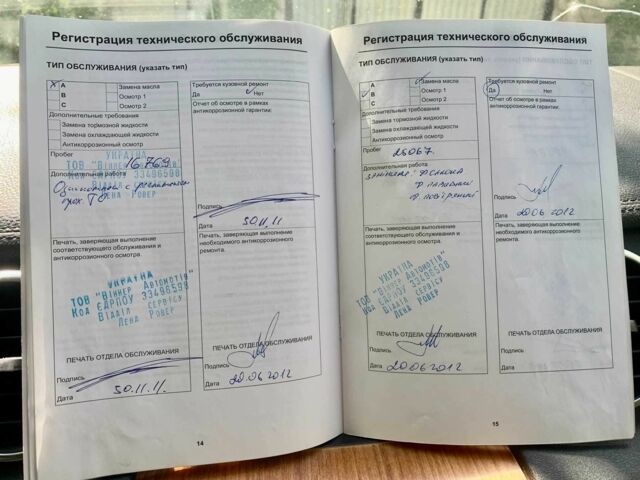 Регистрация технического обслуживания
ТИП ОБСЛУЖИВАНИЯ (указать тип)
A
B
C
Замена масла
Осмотр 1
Осмотр 2
Дополнительные требования
Замена тормозной жидкости
Замена охлаждающей жидкости
Антикоррозийный осмотр
Пробег 16.769
Дополнительная работа
УКРАЇНА
ТОВ "Віннер Автомотів"
33496598
Ленд Ровер
Требуется кузовной ремонт
Да
Нет
Отчет об осмотре в рамках
антикоррозионной гарантии:
Подпись
Дата 30.11.11
Печать, заверяющая выполнение
соответствующего обслуживания и
антикоррозионного осмотра.
УКРАЇНА
ТОВ "Віннер Автомотів"
Код ЄДРПОУ 33496598
Відділ сервісу
Ленд Ровер
ПЕЧАТЬ ОТДЕЛА ОБСЛУЖИВАНИЯ
Подпись
Дата 30.11.11.
Печать, заверяющая выполнение
необходимого антикоррозионного
ремонта.
ПЕЧАТЬ ОТДЕЛА ОБСЛУЖИВАНИЯ
Подпись
Дата 20.06.2012
14
Регистрация технического обслуживания
ТИП ОБСЛУЖИВАНИЯ (указать тип)
A
B
C
Замена масла
Осмотр 1
Осмотр 2
Дополнительные требования
Замена тормозной жидкости
Замена охлаждающей жидкости
Антикоррозийный осмотр
Пробег 26067
Дополнительная работа
Требуется кузовной ремонт
Да
Нет
Отчет об осмотре в рамках
антикоррозионной гарантии:
Подпись
Дата 20.06.2012
Печать, заверяющая выполнение
соответствующего обслуживания и
антикоррозионного осмотра.
УКРАЇНА
ТОВ "Віннер Автомотів"
Код ЄДРПОУ 33496598
Відділ сервісу
Ленд Ровер
ПЕЧАТЬ ОТДЕЛА ОБСЛУЖИВАНИЯ
Подпись
Дата 20.06.2012
Печать, заверяющая выполнение
необходимого антикоррозионного
ремонта.
ПЕЧАТЬ ОТДЕЛА ОБСЛУЖИВАНИЯ
Подпись
Дата
15